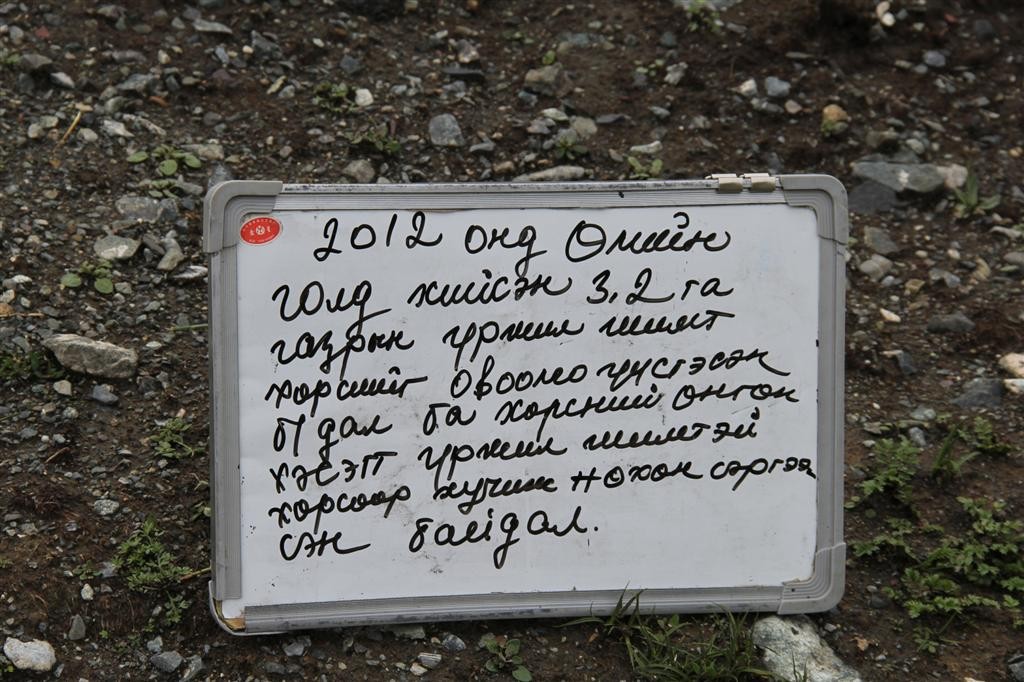 2012 онд Өмийн
голд хийсэн 3,2 га
газрын үржил шимт
хөрсийг овоолго үүсгэсэн
б/дал ба хөрсний онгон
хэсэгт үржил шимтэй
хөрсөөр хучиж нөхөн сэргээ
сэн байдал.